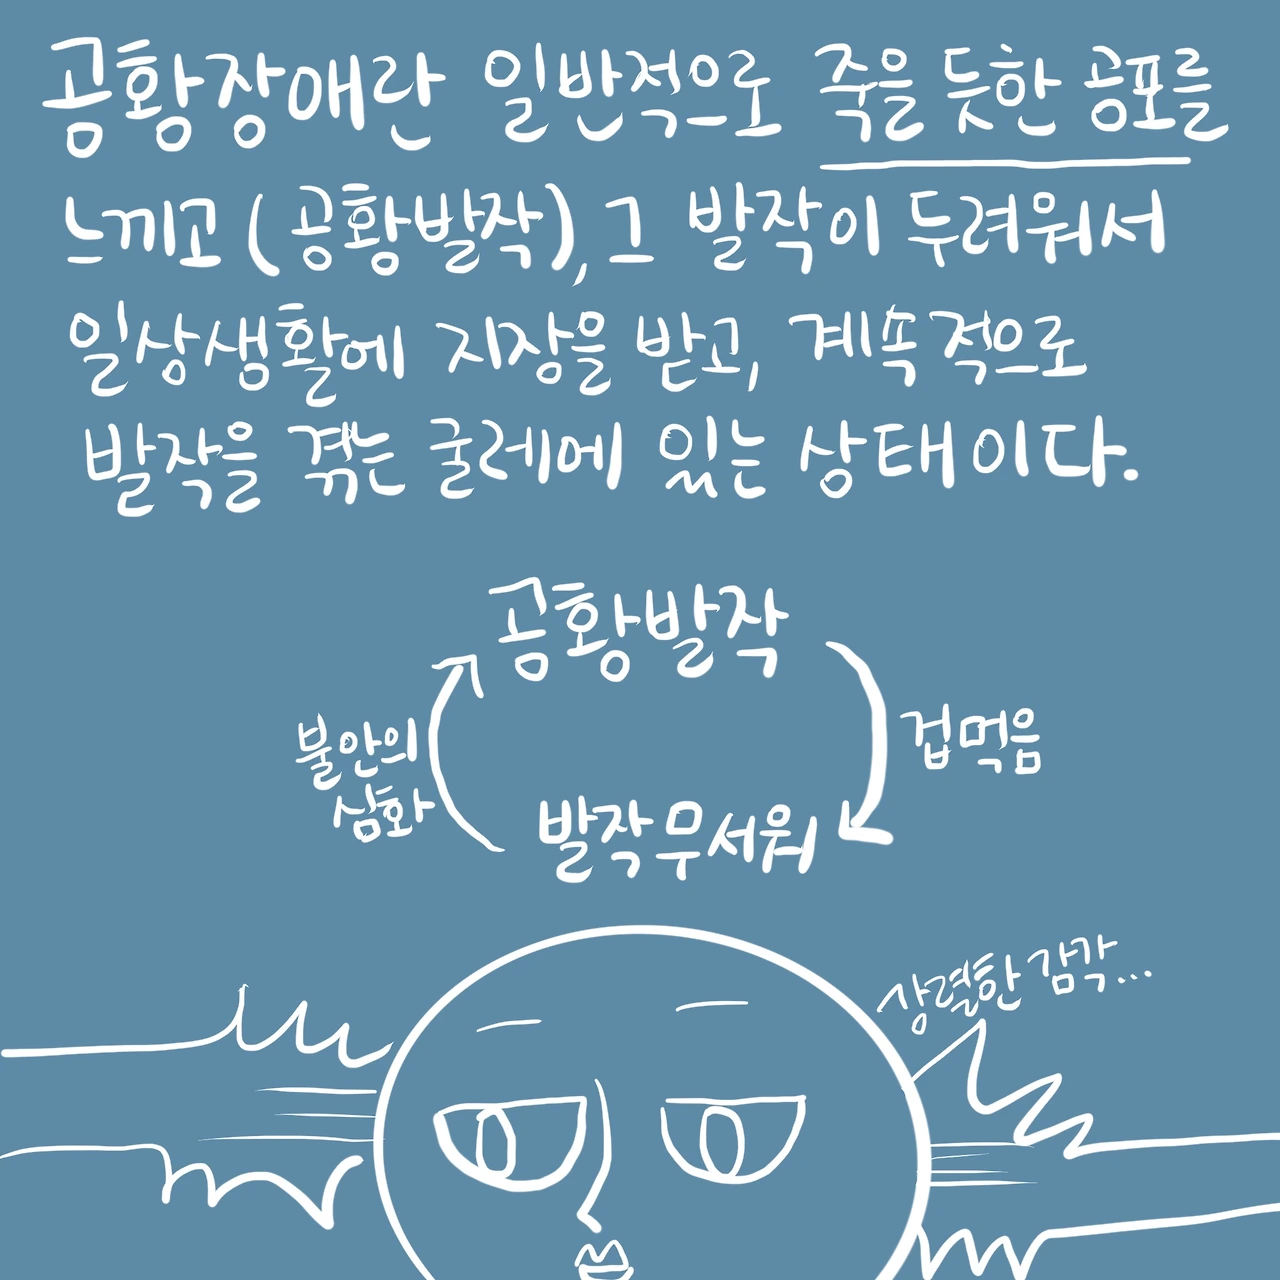 공황장애란 일반적으로 죽을 듯한 공포를
느끼고 (공황발작), 그 발작이 두려워서
일상생활에 지장을 받고, 계속적으로
발작을 겪는 굴레에 있는 상태이다.
공황발작
겁먹음
발작무서워
불안의
심화
강렬한 감각...